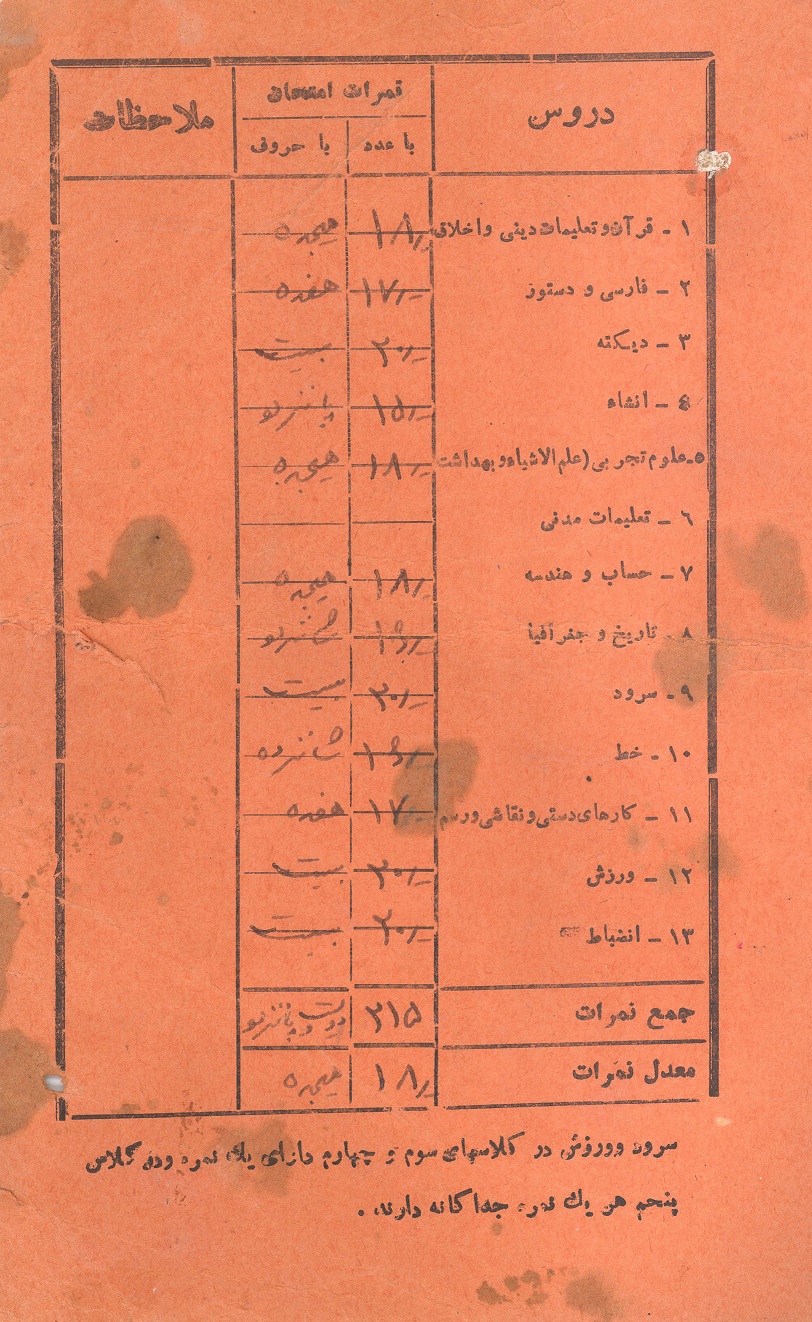 دروس نمرات امتحان ملاحظات
با عدد با حروف
۱ - قرآن و تعلیمات دینی و اخلاق ۱۸ هیجده
۲ - فارسی و دستور ۱۷ هفده
۳ - دیکته ۲۰ بیست
۴ - انشاء ۱۵ پانزده
۵ - علوم تجربی (علم الاشیاء و بهداشت ۱۸ هیجده
۶ - تعلیمات مدنی
۷ - حساب و هندسه ۱۸ هیجده
۸ - تاریخ و جغرافیا ۱۶ شانزده
۹ - سرود ۲۰ بیست
۱۰ - خط ۱۶ شانزده
۱۱ - کارهای دستی و نقاشی و رسم ۱۷ هفده
۱۲ - ورزش ۲۰ بیست
۱۳ - انضباط ۲۰ بیست
جمع نمرات ۲۱۵ دویست و پانزده
معدل نمرات ۱۸ هیجده
سرود و ورزش در کلاسهای سوم و چهارم دارای یك نمره ودر کلاس
پنجم هر یك نمره جداگانه دارند .